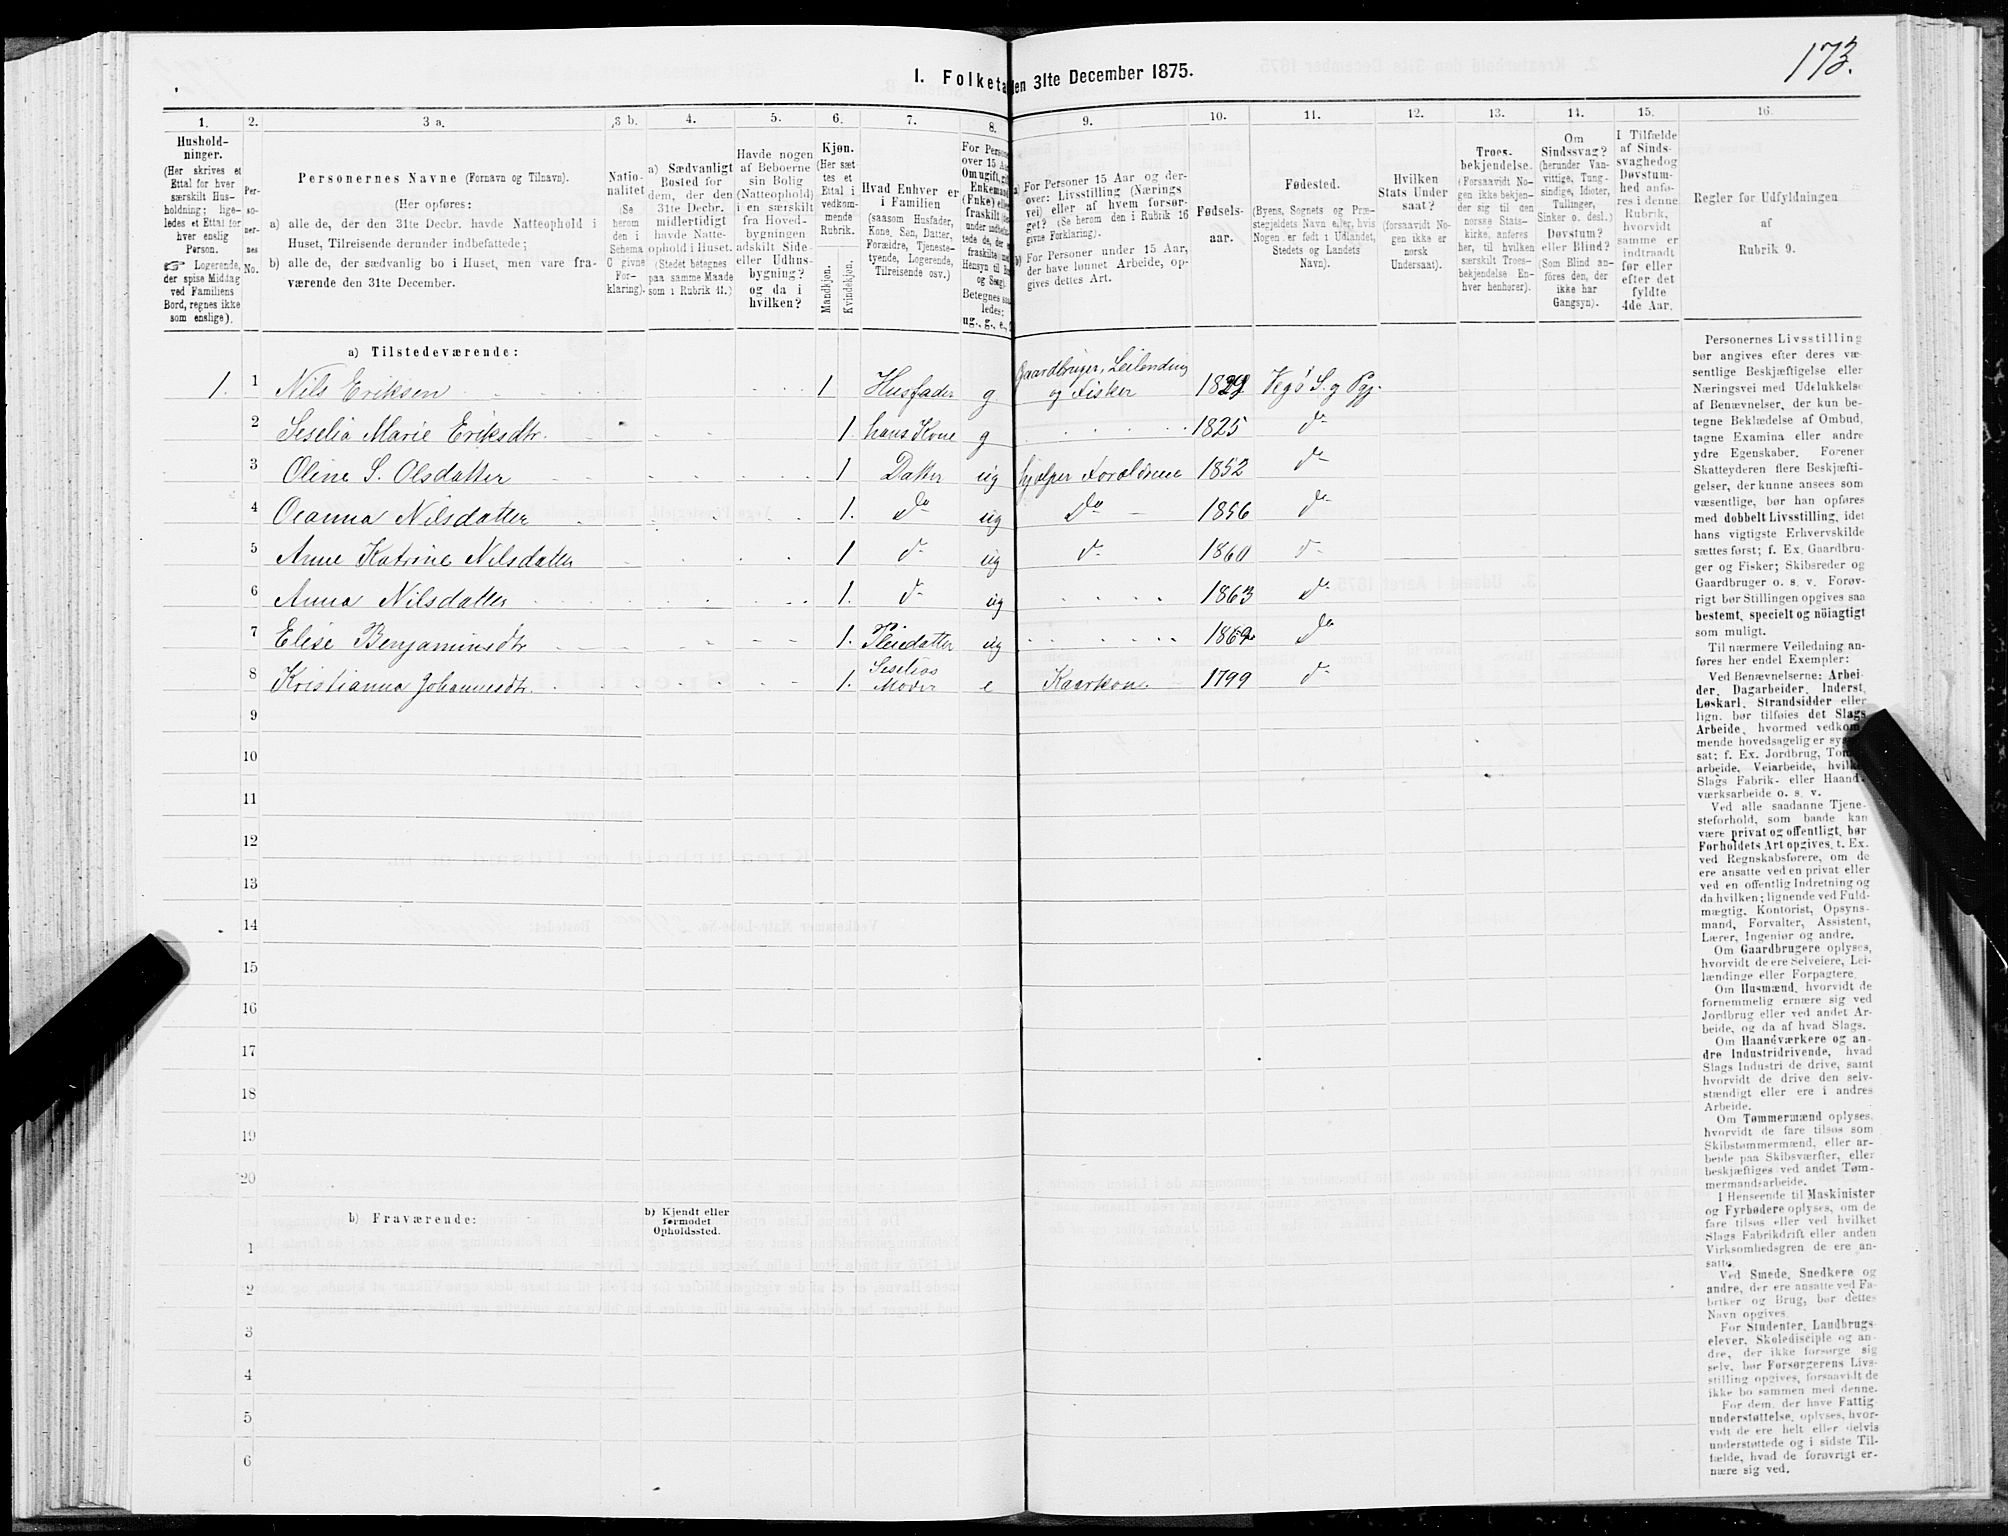 173.
I. Folketa
den 31te December 1875.
1. 2. 3 a. 3 b. 4. 5. 6. 7. 8. 9. 10. 11. 12. 13. 14. 15. 16.
Hushold-
ninger.
(Her skrives et
Ettal for hver
særskilt Hus-
holdning; lige-
ledes et Ettal for
hver enslig
Person.
☞ Logerende,
der spise Middag
ved Familiens
Bord, regnes ikke
som enslige).
Per-
so-
ner-
nes
No.
Personernes Navne (Fornavn og Tilnavn).
(Her opføres:
a) alle de, der den 31te Decbr. havde Natteophold i
Huset, Tilreisende derunder indbefattede;
b) alle de, der sædvanlig bo i Huset, men vare fra-
værende den 31te December.
Natio-
nalitet
(Se
herom
den i
Schema
C givne
For-
klaring).
a) Sædvanligt
Bosted for
dem, der den
31te Decbr.
midlertidigt
havde Natte-
ophold i Huset.
(Stedet betegnes
paa samme Maade
som i Rubrik 11.)
Havde nogen
af Beboerne
sin Bolig
(Natteophold)
i en særskilt
fra Hoved-
bygningen
adskilt Side-
eller Udhus-
bygning?
og da i
hvilken?
Kjøn.
(Her sæt-
tes et
Ettal i
vedkom-
mende
Rubrik.
Mandkjøn.
Kvindekjøn.
Hvad Enhver er
i Familien
(saasom Husfader,
Kone, Søn, Datter,
Forældre, Tjeneste-
tyende, Logerende,
Tilreisende osv.)
For Persone
over 15 A
Om ugift, g
Enkeman
(Enke) elle
fraskilt
under indbe
tede de, der
fraskilte
Hensyn til Bo
og Seng).
Betegnes saa
ledes:
ug., g., e.,
a) For Personer 15 Aar og der-
over: Livsstilling (Nærings
vei) eller af hvem forsør-
get? (Se herom den i Rubrik 16
givne Forklaring).
b) For Personer under 15 Aar,
der have lønnet Arbeide, op-
gives dettes Art.
Fødsels-
aar.
Fødested.
(Byens, Sognets og Præ-
stegjeldets Navn eller, hvis
Nogen er født i Udlandet,
Stedets og Landets
Navn).
Hvilken
Stats Under
saat?
(forsaavidt No-
gen ikke er
norsk
Undersaat).
Troes-
bekjendelse.
(Forsaavidt No-
gen ikke bekjen-
der sig til den
norske Stats-
kirke, anføres
her, til hvilken
særskilt Troes-
bekjendelse En-
hver henhører).
Om
Sindssvag?
(herunder Van-
vittige, Tung-
sindige, Idioter,
Tullinger,
Sinker o. desl.)
Døvstum?
eller Blind?
(Som Blind an-
føres den, der
ikke har
Gangsyn).
I Tilfælde
af Sinds-
svaghed og
Døvstum-
hed anfø-
res i denne
Rubrik,
hvorvidt
samme er
indtraadt
før eller
efter det
fyldte
4de Aar.
Regler for Udfyldningen
af
Rubrik 9.
a) Tilstedeværende:
1. 1 Nils Eriksen 1 Husfader g Gaardbruger, Leilending og Fisker 1829 Vegø S. og Pgj.
2 Seselia Marie Eriksdtr. 1. hans Kone g 1825 do
3 Oline S. Olsdatter 1 Datter ug hjælper Forældrene 1852 do
4 Oeanna Nilsdatter 1. Do ug Do 1856 do
5 Anne Katrine Nilsdatter 1 do ug do 1860 do
6 Anna Nilsdatter 1. do ug 1863 do
7 Elise Benjaminsdtr 1. Pleiedatter ug 1862 Do
8 Kristianna Johannesdtr. 1. Seselias Moder e Kaarkone 1799 do
9
10
11
12
13
14
15
16
17
18
19
20
b) Fraværende:
b) Kjendt eller
formodet
Opholdssted.
1
2
3
4
5
6
Personernes Livsstilling
bør angives efter deres væ-
sentlige Beskjæftigelse eller
Næringsvei med Udelukkelse
af Benævnelser, der kun be-
tegne Beklædelse af Ombud,
tagne Examina eller andre
ydre Egenskaber. Forener
Skatteyderen flere Beskjæfti-
gelser, der kunne ansees som
væsentlige, bør han opføres
med dobbelt Livsstilling, idet
hans vigtigste Erhvervskilde
sættes først; f. Ex. Gaardbru-
ger og Fisker; Skibsreder og
Gaardbruger o. s. v. Forøv-
rigt bør Stillingen opgives saa
bestemt, specielt og nöiagtigt
som muligt.
Til nærmere Veiledning an-
føres her endel Exempler:
Ved Benævnelserne: Arbei-
der, Dagarbeider, Inderst,
Løskarl, Strandsidder eller
lign. bør tilføies det Slags
Arbeide, hvormed vedkom-
mende hovedsagelig er sys
sat; f. Ex. Jordbrug, Tom
arbeide, Veiarbeide, hvilke
Slags Fabrik- eller Haand-
værksarbeide o. s. v.
Ved alle saadanne Tjene-
steforhold, som baade kan
være privat og offentligt, bør
Forholdets Art opgives, t. Ex.
ved Regnskabsførere, om de
ere ansatte ved en privat eller
ved en offentlig Indretning og
da hvilken; lignende ved Fuld-
mægtig, Kontorist, Opsyns-
mand, Forvalter, Assistent,
Lærer, Ingeniør og andre.
Om Gaardbrugere oplyses,
hvorvidt de ere Selveiere, Lei-
lændinge eller Forpagtere.
Om Husmænd, hvorvidt de
fornemmelig ernære sig ved
Jordbrug eller ved andet Ar-
beide, og da af hvad Slags.
Om Haandværkere og an-
dre Industridrivende, hvad
Slags Industri de drive, samt
hvorvidt de drive den selv-
stændigt eller ere i andres
Arbeide.
Om Tømmermænd oplyses,
hvorvidt de fare tilsøs som
Skibstømmermænd, eller ar-
beide paa Skibsværfter, eller
beskjæftiges ved andet Tøm-
mermandsarbeide.
I Henseende til Maskinister
og Fyrbødere oplyses, om de
fare tilsøs eller ved hvilket
Slags Fabrikdrift eller anden
Virksomhedsgren de ere an-
satte.
Ved Smede, Snedkere og
andre, der ere ansatte ved Fa-
briker og Brug, bør dettes
Navn opgives.
For Studenter, Landbrugs-
elever, Skoledisciple og an-
dre, der ikke forsørge sig
selv, bør Forsørgerens Livs-
stilling opgives, forsaavidt de
ikke bo sammen med denne.
For dem, der have Fattig-
understøttelse, oplyses, hvor-
vidt de ere helt eller delvis
understøttede og i sidste Til-
fælde, hvad de forøvrigt er-
nære sig ved.